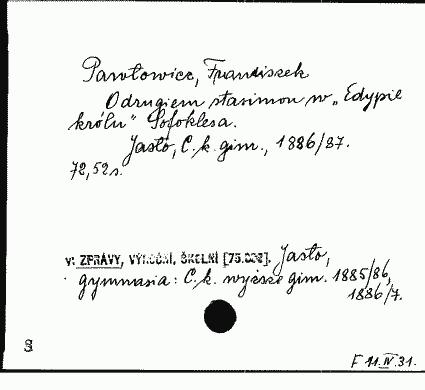 Pawłowicz, Franciszek
O drugiem stasimon w „Edypie
królu" Sofoklesa.
Jasło, C. k. gim., 1886/87.
72, 52 s.
v: ZPRÁVY, VÝROČNÍ, ŠKOLNÍ [75.    ]. Jasło,
gymnasia: C. k. wyższe gim. 1885/86,
1886/7.
S
F 11.IV.31.